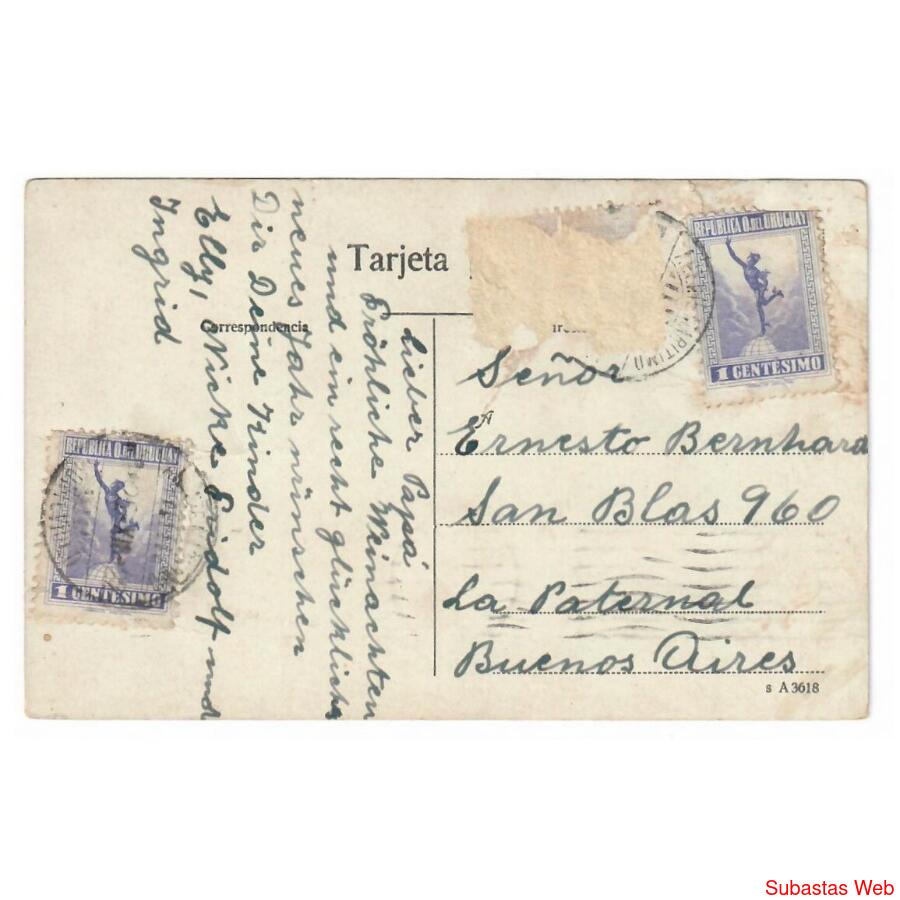 Tarjeta
Correspondencia
Lieber Papa!
Fröhliche Weinachten
und ein recht glückliches
neues Jahr wünschen
Dir Deine Kinder
Elly, Nicke, Luidolf und
Ingrid
REPUBLICA O. DEL URUGUAY
1 CENTESIMO
MARITIMO
Señor
A
Ernesto Bernhard
San Blas 960
La Paternal
Buenos Aires
s A 3618
REPUBLICA O. DEL URUGUAY
1 CENTESIMO
Subastas Web